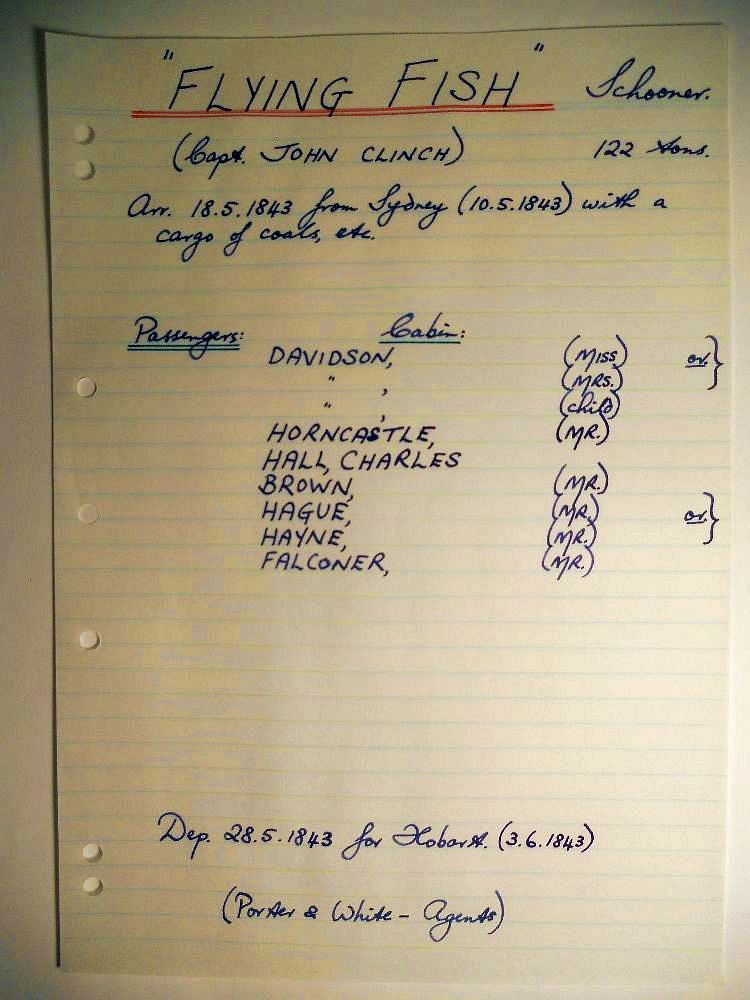 "FLYING FISH" Schooner.
(Capt. JOHN CLINCH) 122 tons.
Arr. 18.5.1843 from Sydney (10.5.1843) with a
cargo of coals, etc.
Passengers: Cabin:
DAVIDSON, (MISS) or }
" , (MRS.)
" , (child)
HORNCASTLE, (MR.)
HALL, CHARLES
BROWN, (MR.)
HAGUE, (MR.) or }
HAYNE, (MR.)
FALCONER, (MR.)
Dep. 28.5.1843 for Hobart. (3.6.1843)
(Porter & White - Agents)